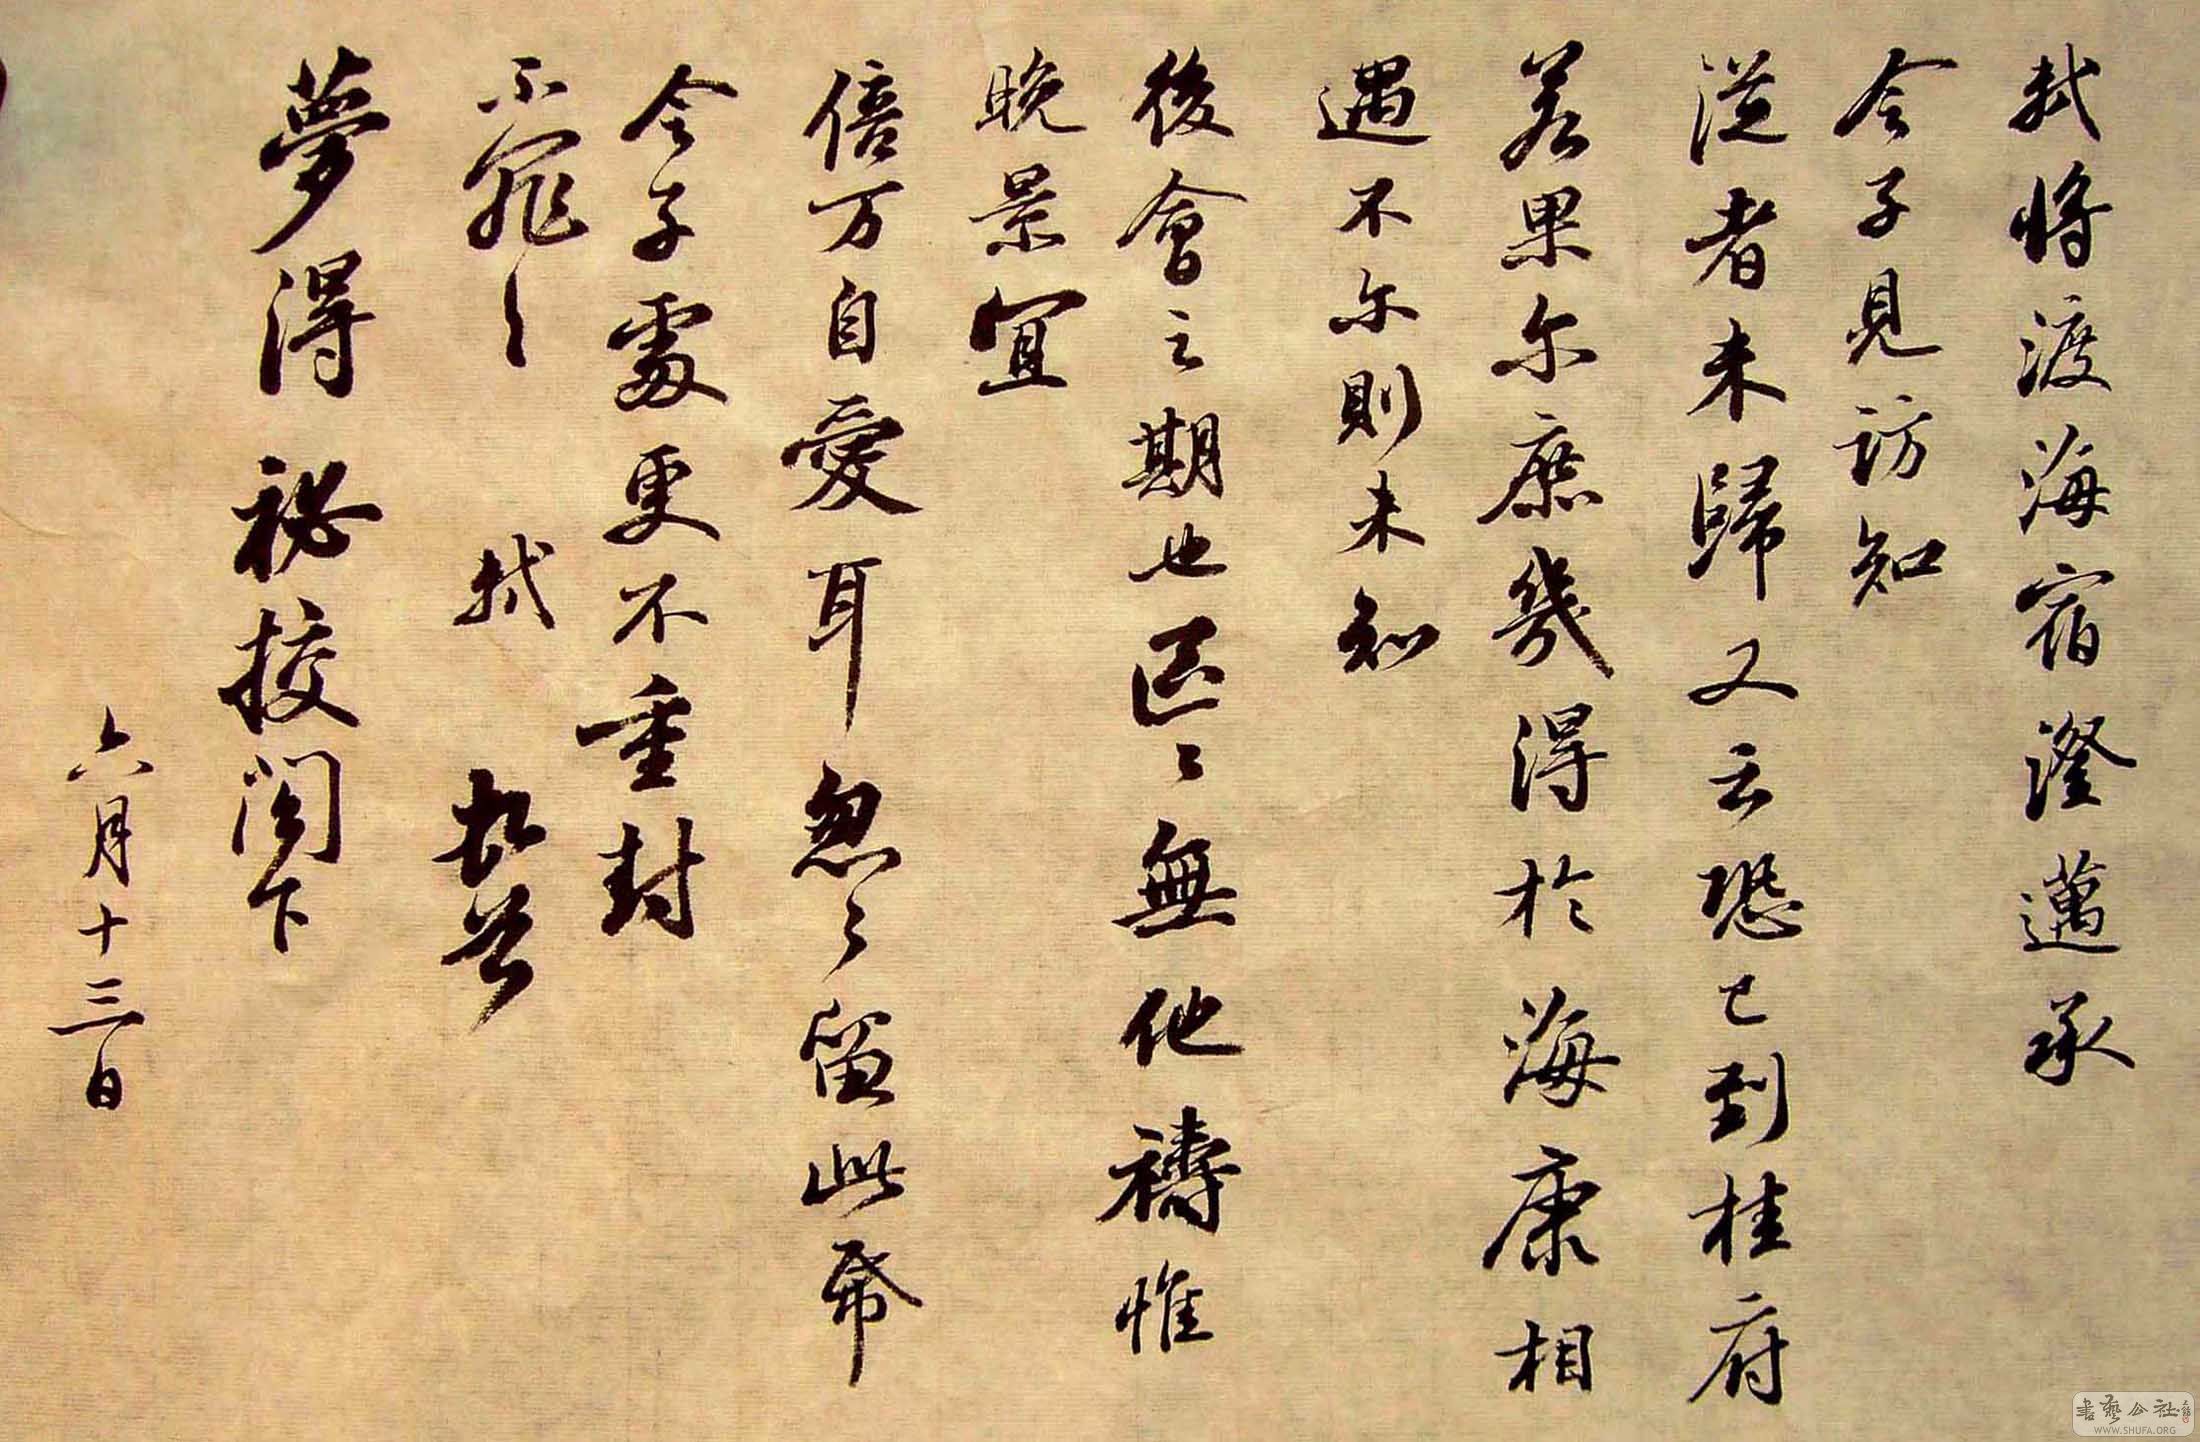 軾將渡海宿澄邁承
令子見訪知
從者未歸又云恐已到桂府
若果尔庶幾得於海康相
遇不尔則未知
後會之期也區〻無他禱惟
晚景宜
倍万自愛耳忽〻留此帋
令子處更不重封
不罪〻 軾 頓首
夢得祕挍閤下
六月十三日
書藝公社
WWW.SHUFA.ORG